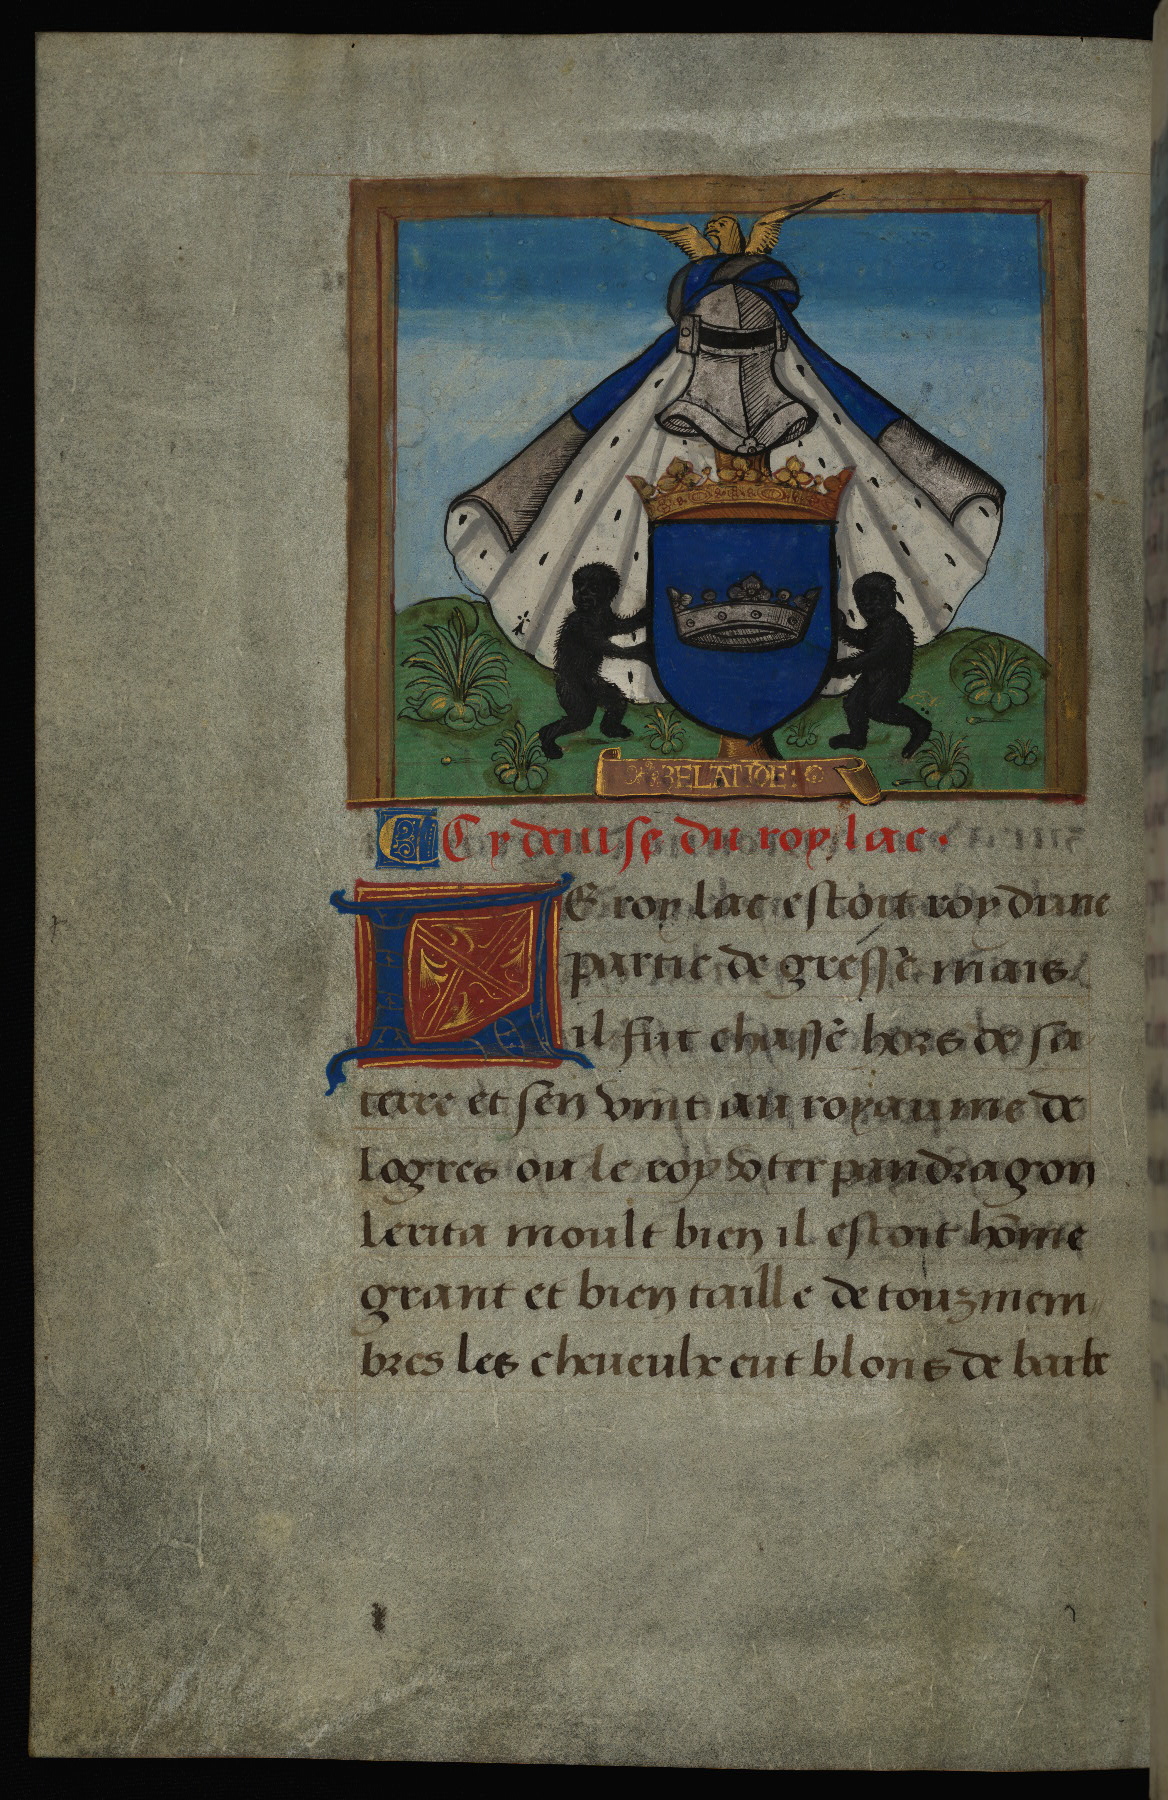 BELATIDE:
Cy deuise du roy lac.
LE roy lac estoit roy dune
partie de gresse mais
il fut chasse hors de sa
terre et sen vint au royaume de
logres ou le roy vter pandragon
lerita moult bien il estoit hōme
grant et bien taille de touz mem
bres les cheueulx eut blons de barbe